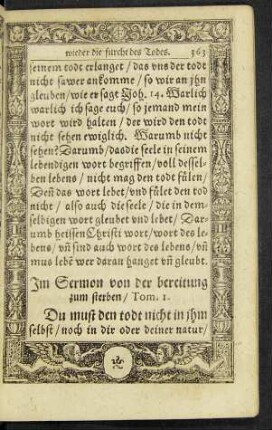 wieder die furcht des Todes. 363
seinem todt erlanget / das vns der todt
nicht sawer ankomme / so wir an jhn
gleuben / wie er sagt Joh. 14. Warlich
warlich ich sage euch / so jemand mein
wort wird halten / der wird den todt
nicht sehen ewiglich. Warumb nicht
sehen? Darumb / das die seele in seinem
lebendigen wort begriffen / voll dessel-
ben lebens / nicht mag den todt fülen /
Deñ das wort lebet / vnd fület den tod
nicht / also auch die seele / die in dem-
selbigen wort gleubet vnd lebet / Dar-
umb heissen Christi wort / wort des le-
bens / vñ sind auch wort des lebens / vñ
mus lebē wer daran hanget vñ gleubt.
Im Sermon von der bereitung
zum sterben / Tom. 1.
Du must den todt nicht in jhm
selbst / noch in dir oder deiner natur /